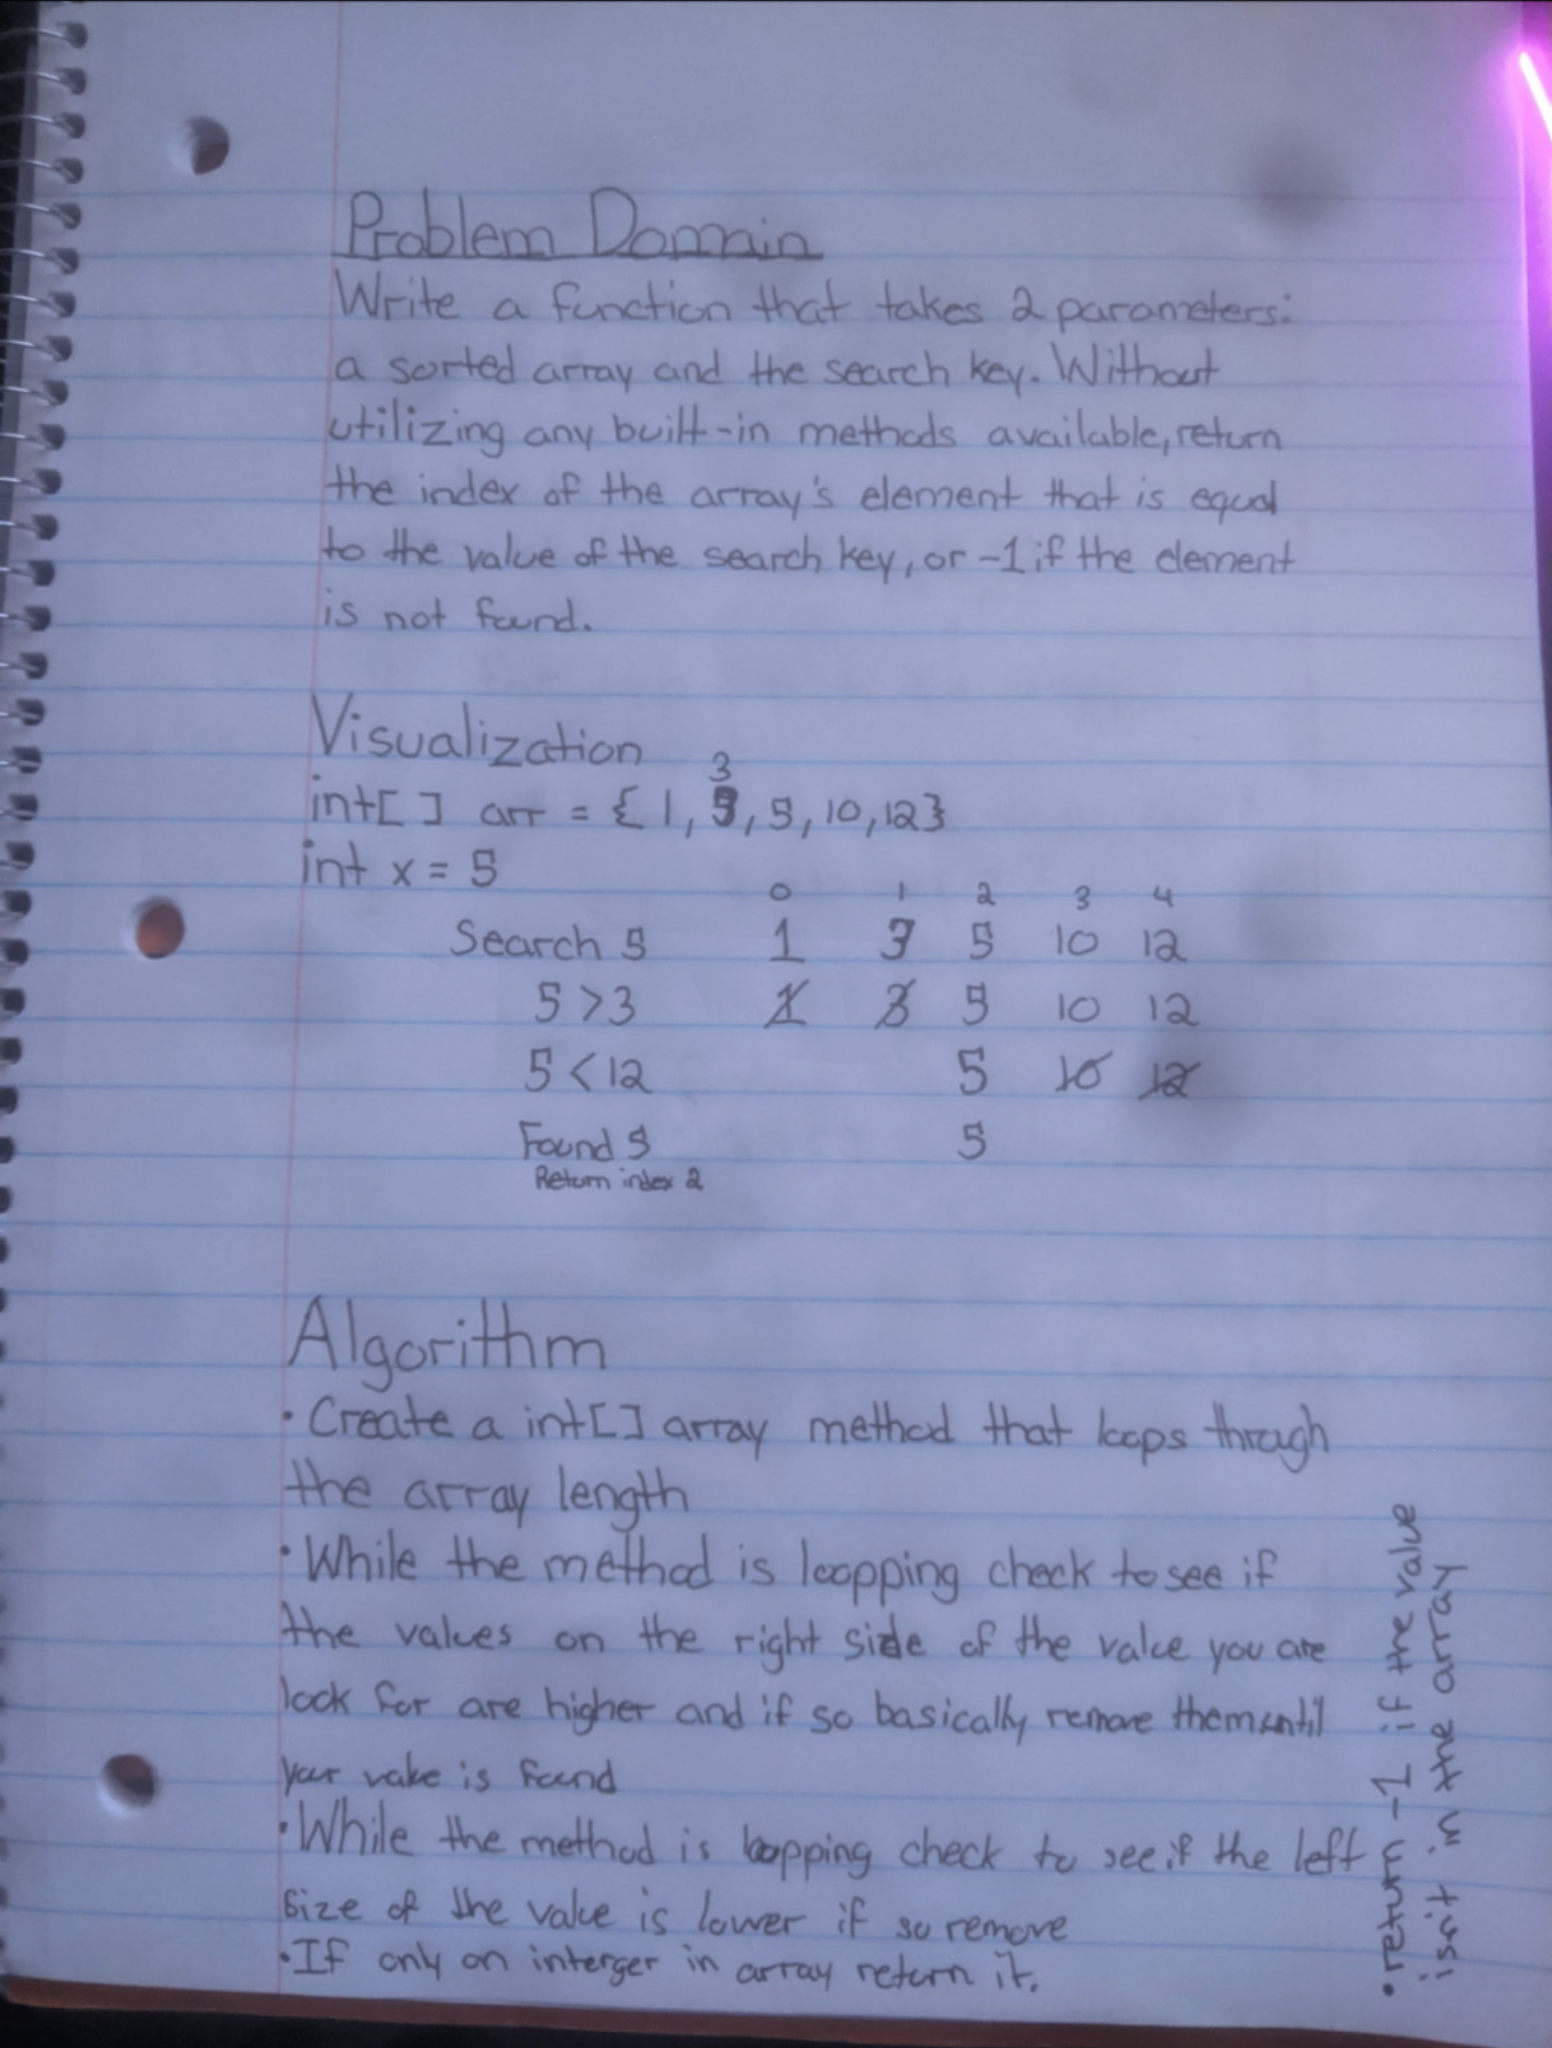 Problem Domain
Write a function that takes 2 parameters:
a sorted array and the search key. Without
utilizing any built-in methods available, return
the index of the array's element that is equal
to the value of the search key, or -1 if the element
is not found.
Visualization
3
int[] arr = { 1, 3, 5, 10, 12}
int x = 5
0 1 2 3 4
Search 5 1 3 5 10 12
5 > 3 1 3 5 10 12
5 < 12 5 10 12
Found 5 5
Return index 2
Algorithm
• Create a int[] array method that loops through
the array length
• While the method is loopping check to see if
the values on the right side of the value you are
look for are higher and if so basically remove them until
your value is found
• While the method is loopping check to see if the left
size of the value is lower if so remove
• If only on interger in array return it.
• return -1 if the value
isn't in the array